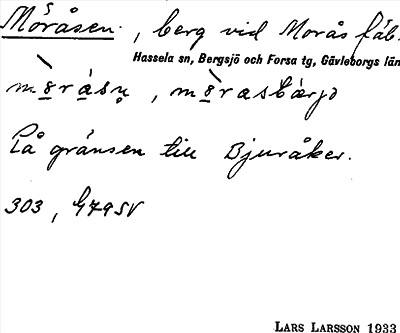 Moråsen, berg vid Morås fäb.
Hassela sn, Bergsjö och Forsa tg, Gävleborgs län
På gränsen till Bjuråker.
303, G79SV
LARS LARSSON 1933